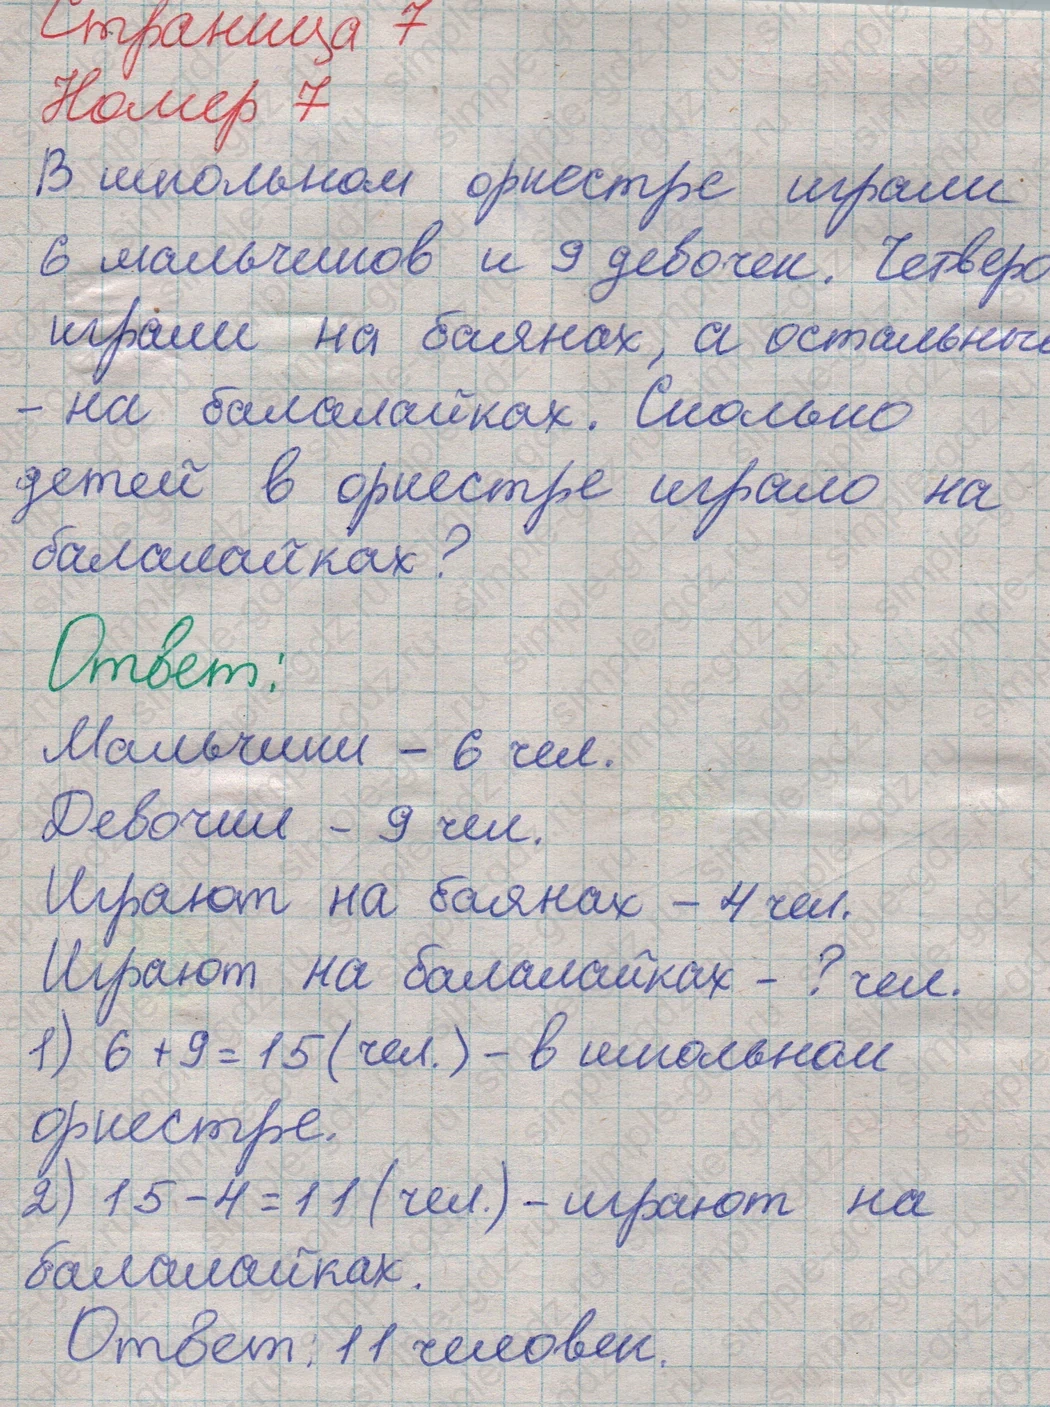 Страница 7
Номер 7
В школьном оркестре играли
6 мальчиков и 9 девочек. Четверо
играли на баянах, а остальные
- на балалайках. Сколько
детей в оркестре играло на
балалайках?
Ответ:
Мальчики - 6 чел.
Девочки - 9 чел.
Играют на баянах - 4 чел.
Играют на балалайках - ? чел.
1) 6 + 9 = 15 (чел.) - в школьном
оркестре.
2) 15 - 4 = 11 (чел.) - играют на
балалайках.
Ответ: 11 человек.